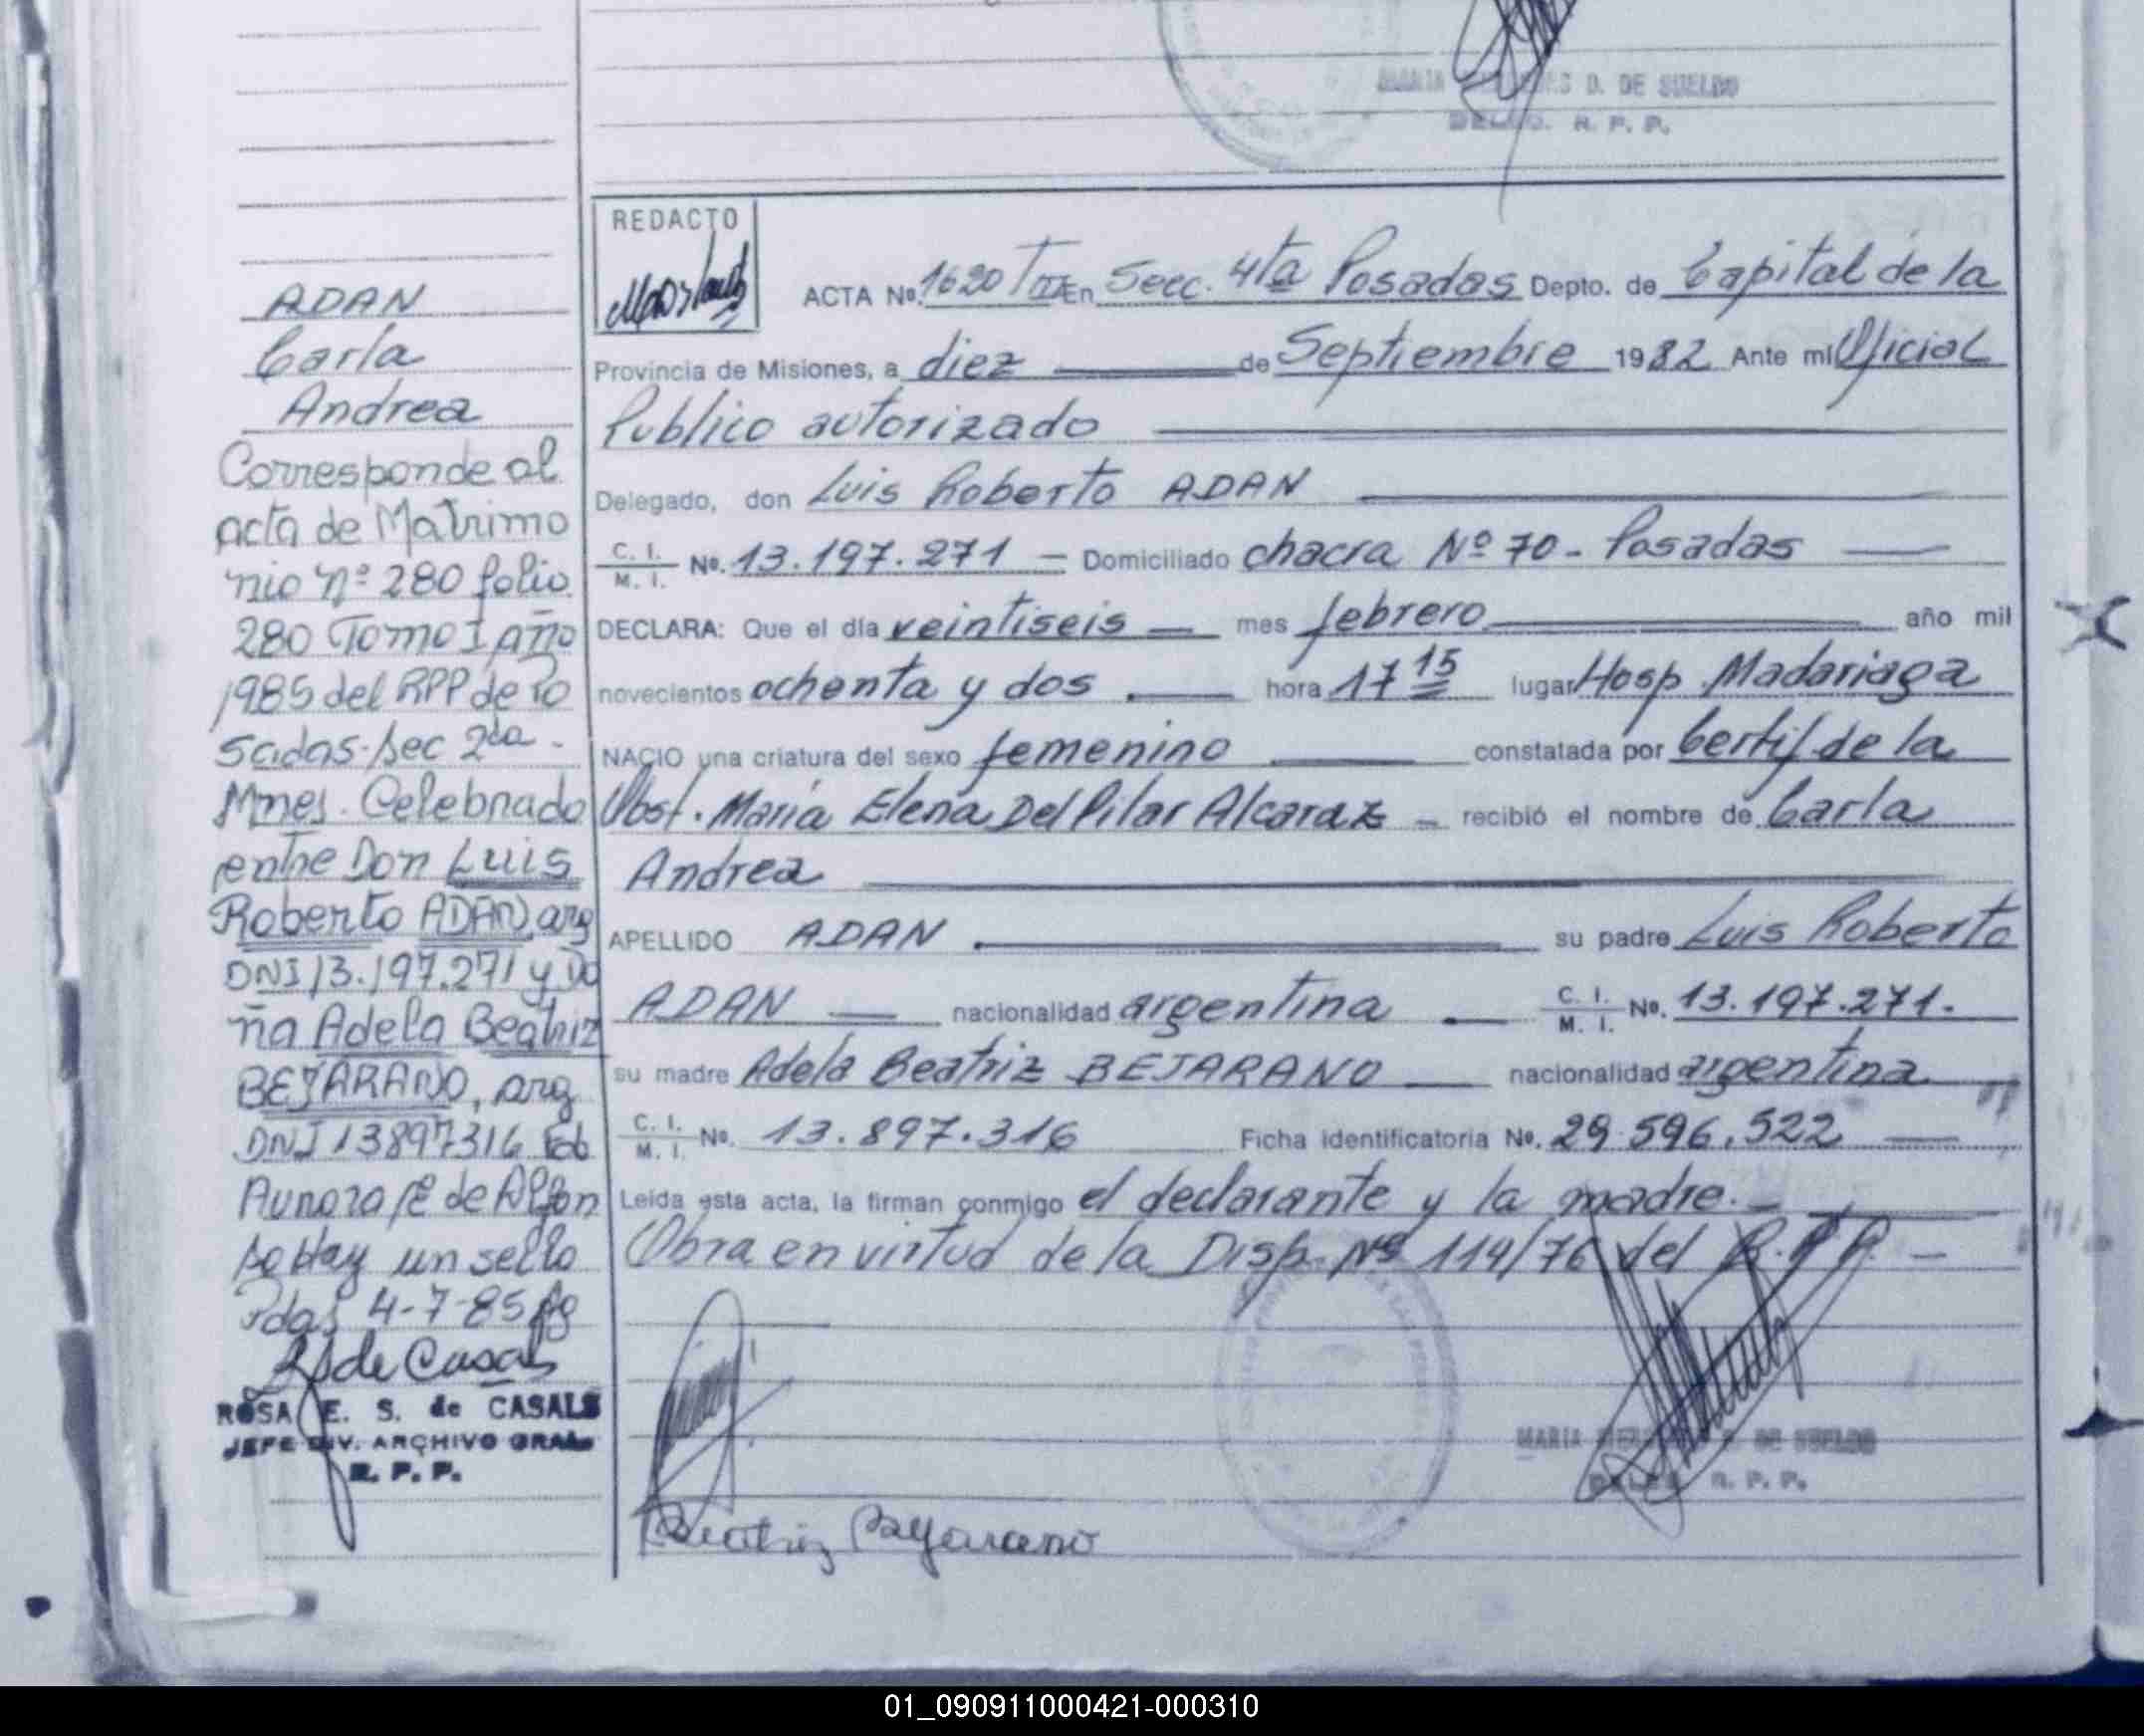 DE SUELDO
R. P. P.
ADAN
Carla
Andrea
Corresponde al
acta de Matrimo
nio Nº 280 folio
280 Tomo I año
1985 del RPP de Po
sadas-sec 2da -
Mnes. Celebrado
entre Don Luis
Roberto ADAN, arg
DNI 13.197.271 y Do
ña Adela Beatriz
BEJARANO, arg
DNI 13897316 Fdo
Aurora F de Alfon
so Hay un sello
Pdas 4-7-85
R S de Casals
ROSA E. S. de CASALS
JEFE DIV. ARCHIVO GRAL.
R. P. P.
REDACTO
ACTA No. 1620 T III En Secc. 4ta Posadas Depto. de Capital de la
Provincia de Misiones, a diez de Septiembre 1982 Ante mi Oficial
Publico autorizado
Delegado, don Luis Roberto ADAN
C. I. / M. I. No. 13.197.271 - Domiciliado chacra Nº 70 - Posadas
DECLARA: Que el día veintiseis mes febrero año mil
novecientos ochenta y dos . hora 17 15 lugar Hosp. Madariaga
NACIO una criatura del sexo femenino constatada por Certif de la
Obst. María Elena Del Pilar Alcaraz - recibió el nombre de Carla
Andrea
APELLIDO ADAN . su padre Luis Roberto
ADAN nacionalidad argentina C. I. / M. I. No. 13.197.271.
su madre Adela Beatriz BEJARANO nacionalidad argentina
C. I. / M. I. No. 13.897.316 Ficha identificatoria No. 29.596.522
Leída esta acta, la firman conmigo el declarante y la madre. -
Obra en virtud de la Disp. Nº 114/76 del R.P.P. -
MARIA DE SUELDO
R. P. P.
Beatriz Bejarano
01_090911000421-000310